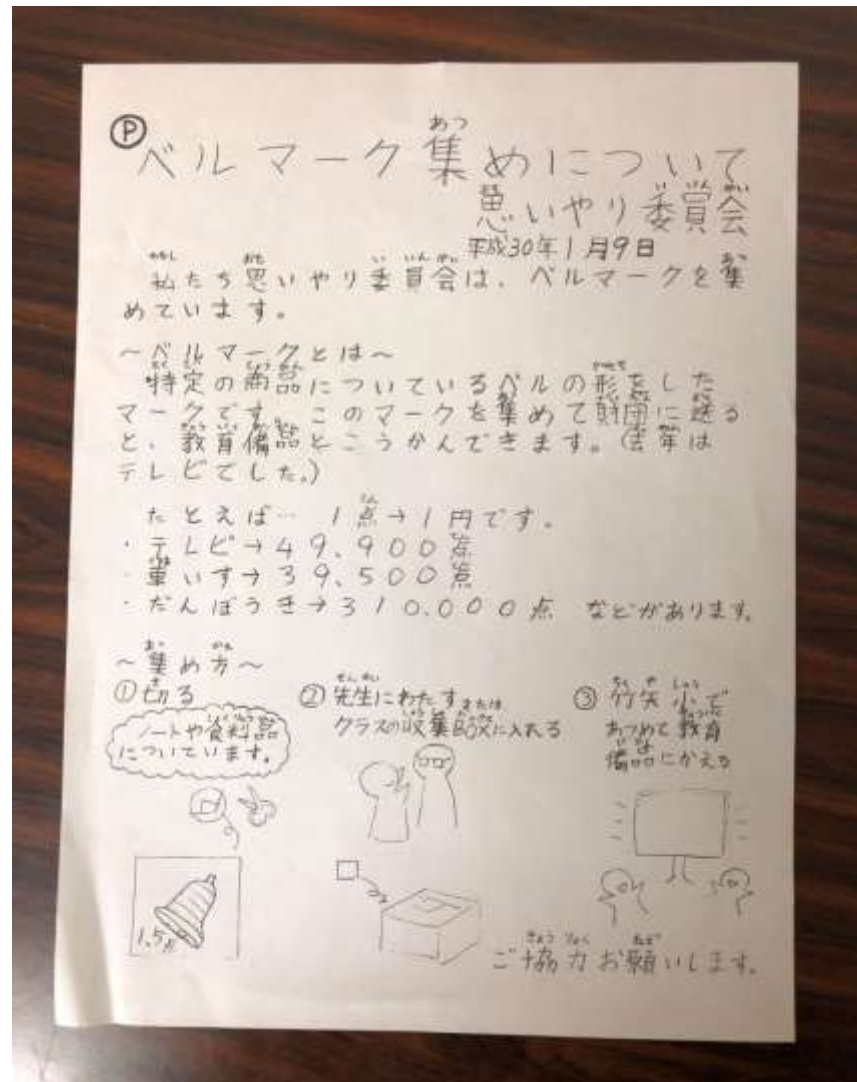 Ⓟ
ベルマーク集めについて
思いやり委員会
平成30年1月9日
私たち思いやり委員会は、ベルマークを集
めています。
～ベルマークとは～
特定の商品についているベルの形をした
マークです。このマークを集めて財団に送る
と、教育備品とこうかんできます。(去年は
テレビでした。)
たとえば… 1点→1円です。
・テレビ→49.900点
・車いす→39.500点
・だんぼうき→310.000点 などがあります。
～集め方～
①切る
ノートや資料品
についています。
1.5点
②先生にわたすまたは
クラスの収集BOXに入れる
③竹矢小で
あつめて教育
備品にかえる
ご協力お願いします。